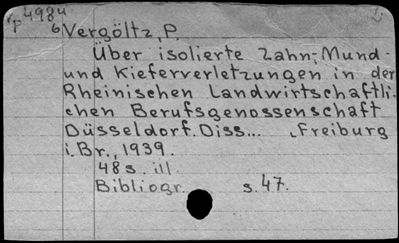 p4984
6Vergöltz, P.
Über isolierte Zahn-, Mund-
und Kieferverletzungen in der
Rheinischen Landwirtschaftli-
chen Berufsgenossenschaft
Düsseldorf. Diss... Freiburg
i. Br., 1939.
48 s. ill.
Bibliogr. s. 47.